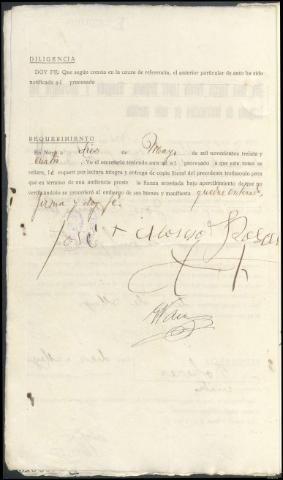 DILIGENCIA
DOY FE: Que según consta en la causa de referencia, el anterior particular de auto ha sido
notificado al procesado
REQUERIMIENTO
En Noya a tres de Mayo de mil novecientos treinta y
cuatro. Yo el secretario teniendo ante mí al procesado a que este ramo se
refiere, le requerí por lectura íntegra y entrega de copia literal del precedente testimonio para
que en término de una audiencia preste la fianza acordada bajo apercibimiento de que no
verificándolo se procederá al embargo de sus bienes y manifiesta queda enterado,
firma y doy fe.
José